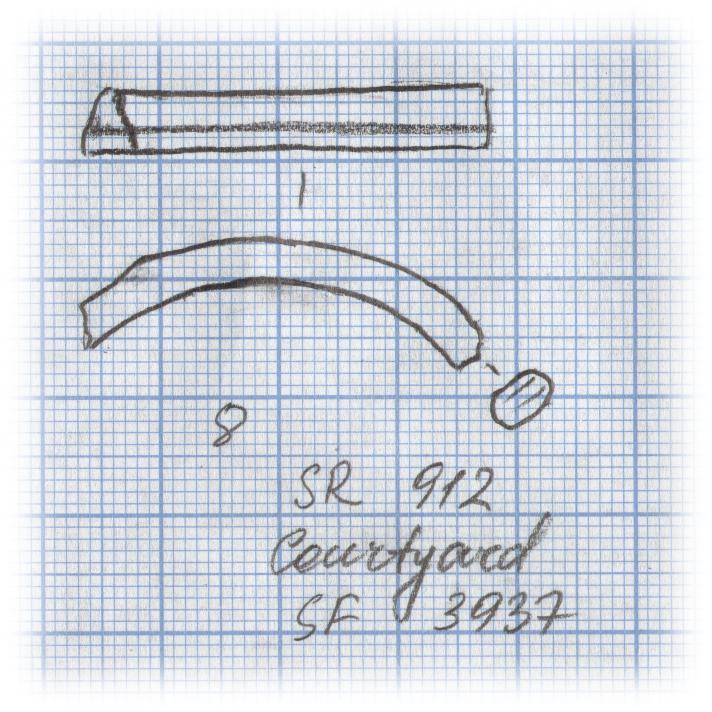 8
SR 912
Courtyard
SF 3937